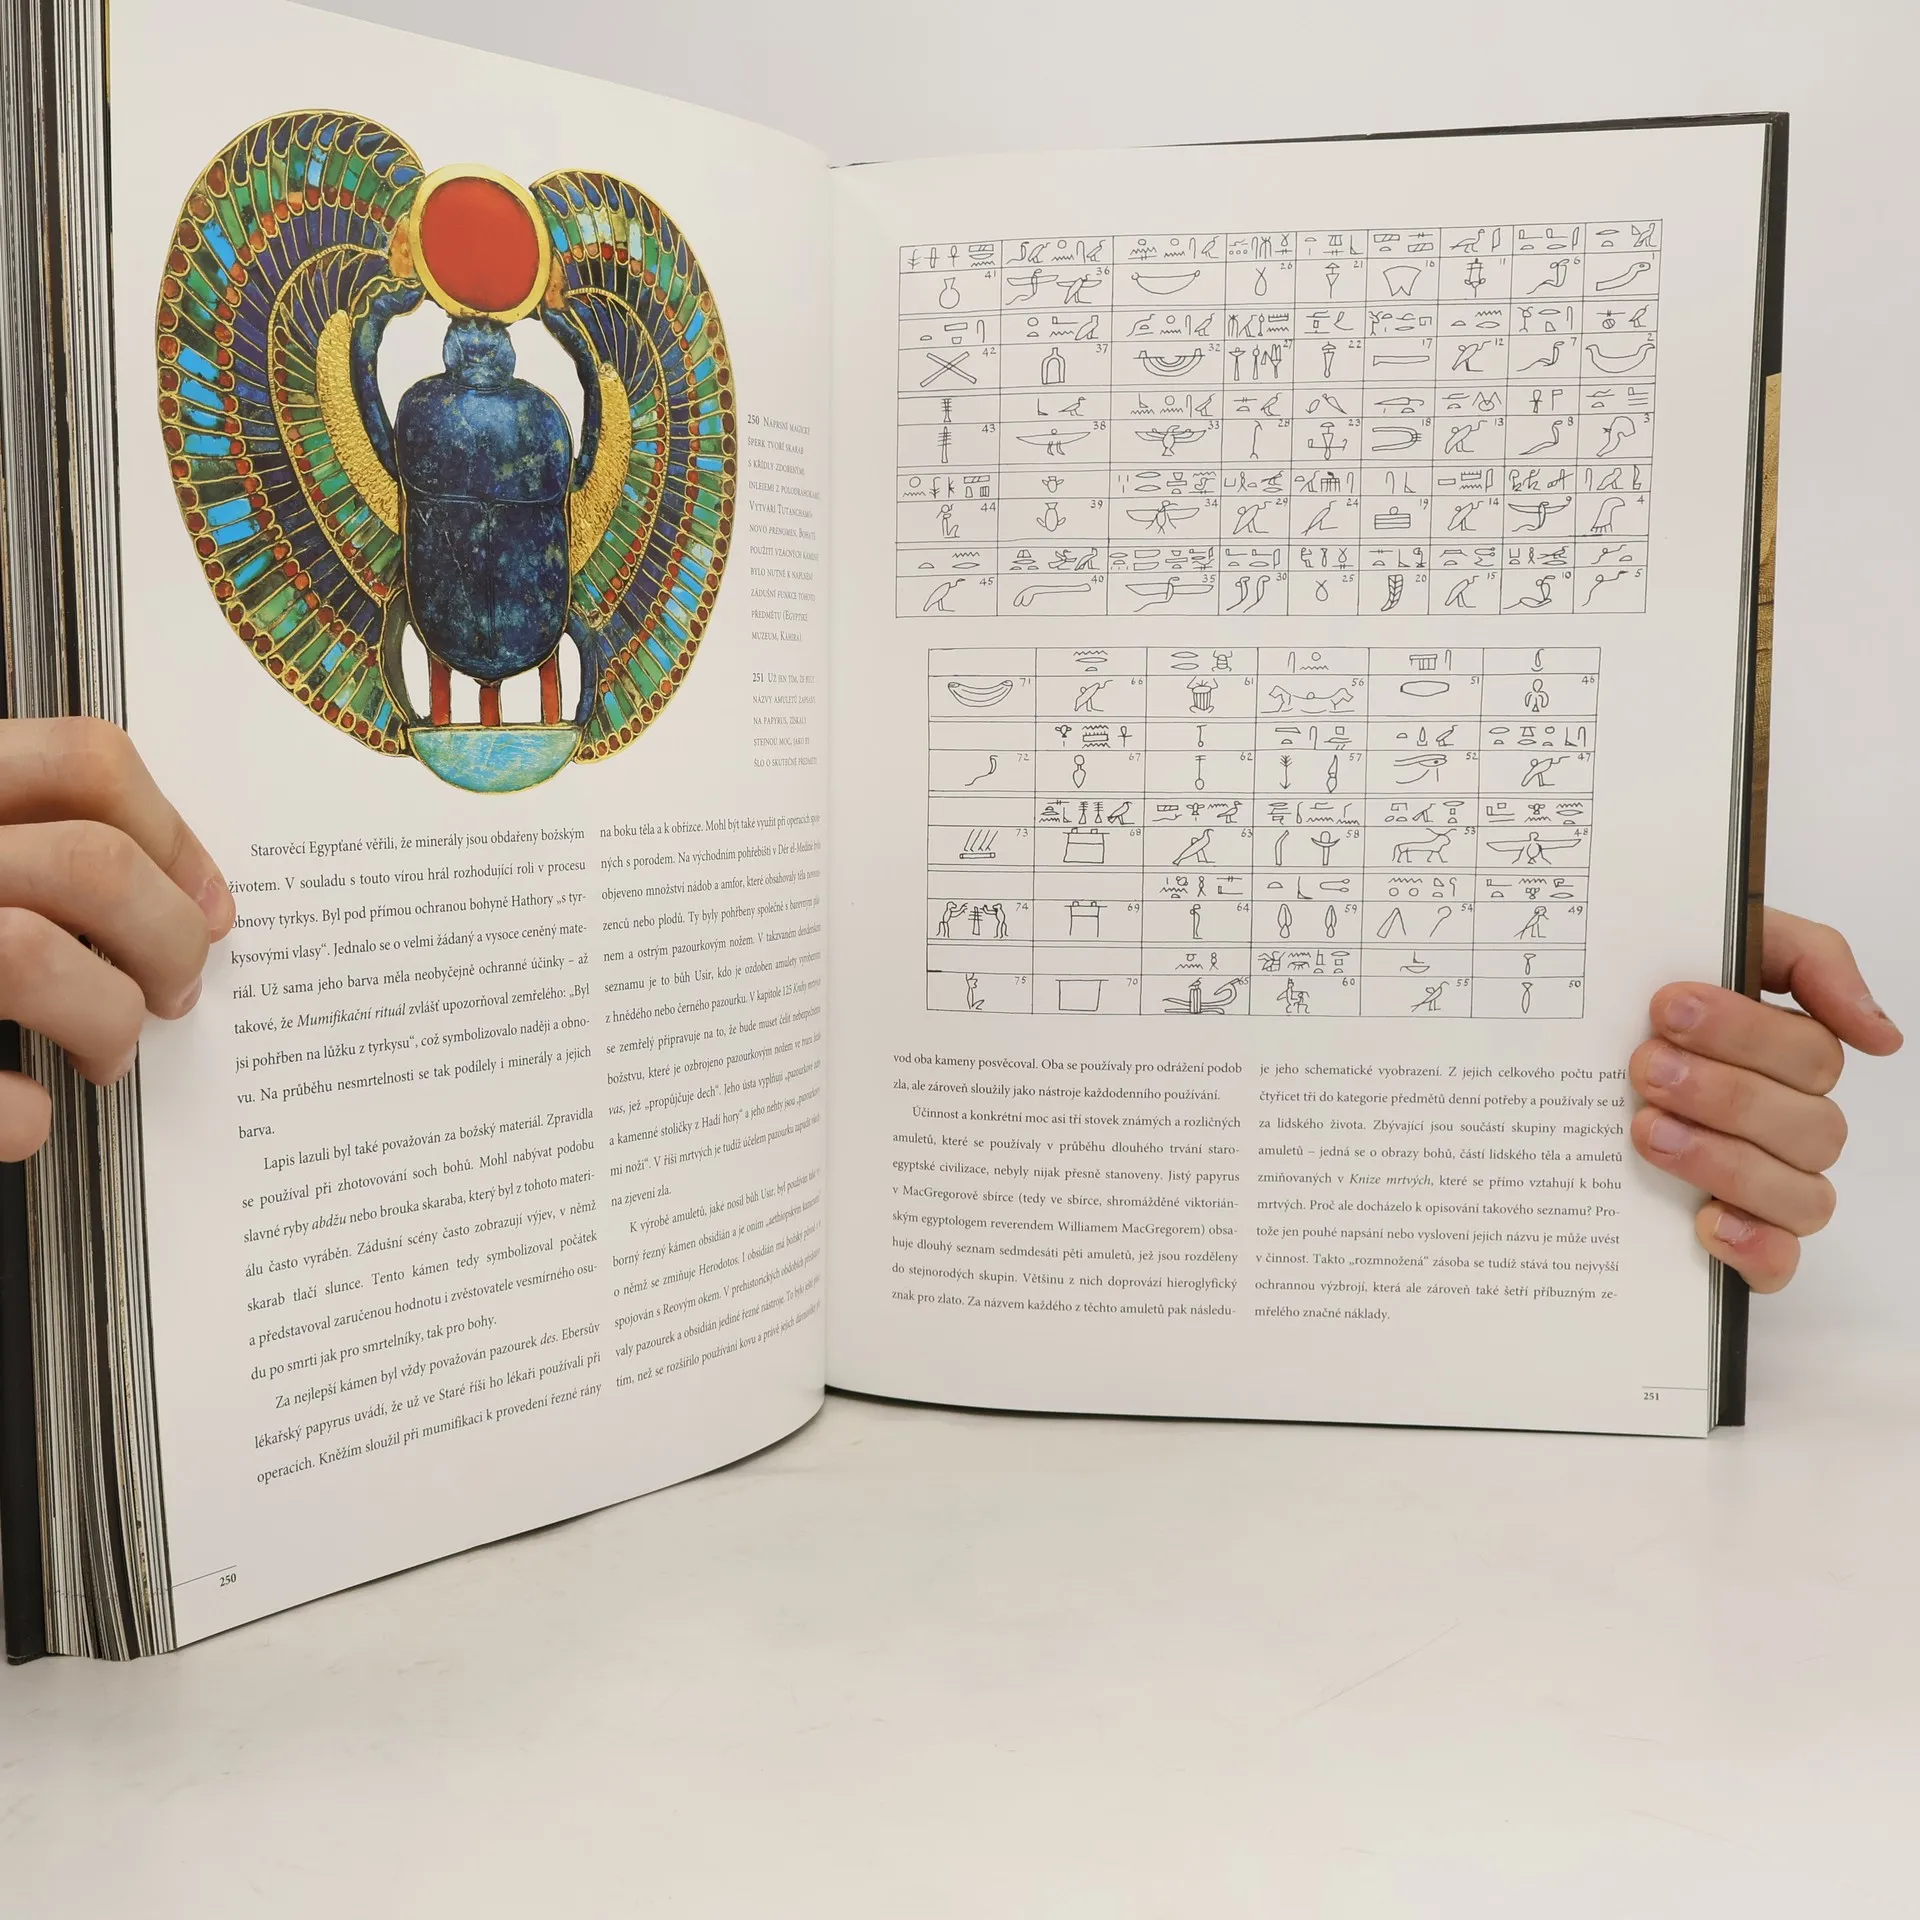 250 Náprsní magický
šperk tvoří skarab
s křídly zdobenými
inlejemi z polodrahokamů.
Vytváří Tutanchamo-
novo prenomen. Bohaté
použití vzácných kamenů
bylo nutné k naplnění
zádušní funkce tohoto
předmětu (Egyptské
muzeum, Káhira).
251 Už jen tím, že byly
názvy amuletů zapsány
na papyrus, získaly
stejnou moc, jako by
šlo o skutečné předměty.
Starověcí Egypťané věřili, že minerály jsou obdařeny božským
životem. V souladu s touto vírou hrál rozhodující roli v procesu
obnovy tyrkys. Byl pod přímou ochranou bohyně Hathory „s tyr-
kysovými vlasy“. Jednalo se o velmi žádaný a vysoce ceněný mate-
riál. Už sama jeho barva měla neobyčejně ochranné účinky – až
takové, že Mumifikační rituál zvlášť upozorňoval zemřelého: „Byl
jsi pohřben na lůžku z tyrkysu“, což symbolizovalo naději a obno-
vu. Na průběhu nesmrtelnosti se tak podílely i minerály a jejich
barva.
Lapis lazuli byl také považován za božský materiál. Zpravidla
se používal při zhotovování soch bohů. Mohl nabývat podobu
slavné ryby abdžu nebo brouka skaraba, který byl z tohoto materi-
álu často vyráběn. Zádušní scény často zobrazují výjev, v němž
skarab tlačí slunce. Tento kámen tedy symbolizoval počátek
a představoval zaručenou hodnotu i zvěstovatele vesmírného osu-
du po smrti jak pro smrtelníky, tak pro bohy.
Za nejlepší kámen byl vždy považován pazourek des. Ebersův
lékařský papyrus uvádí, že už ve Staré říši ho lékaři používali při
operacích. Kněžím sloužil při mumifikaci k provedení řezné rány
na boku těla a k obřízce. Mohl být také využit při operacích spoje-
ných s porodem. Na východním pohřebišti v Dér el-Medíně bylo
objeveno množství nádob a amfor, které obsahovaly těla novoro-
zenců nebo plodů. Ty byly pohřbeny společně s barevným
nem a ostrým pazourkovým nožem. V takzvaném denderském
seznamu je to bůh Usir, kdo je ozdoben amulety vyrobenými
z hnědého nebo černého pazourku. V kapitole 125 Knihy mrtvých
se zemřelý připravuje na to, že bude muset čelit nebezpečnému
božstvu, které je ozbrojeno pazourkovým nožem ve tvaru
vas, jež „propůjčuje dech“. Jeho ústa vyplňují „pazourkové
a kamenné stoličky z Hadí hory“ a jeho nehty jsou „pazourkový-
mi noži“. V říši mrtvých je tudíž účelem pazourku zapudit
na zjevení zla.
K výrobě amuletů, jaké nosil bůh Usir, byl používán také vý-
borný řezný kámen obsidián a je oním „aethiopským kamenem“,
o němž se zmiňuje Herodotos. I obsidián má božský původ a
spojován s Reovým okem. V prehistorických obdobích představo-
valy pazourek a obsidián jediné řezné nástroje. To bylo ještě před
tím, než se rozšířilo používání kovu a právě jejich dávnověký pů-
250
41 36 26 21 16 11 6 1
42 37 32 27 22 17 12 7 2
43 38 33 28 23 18 13 8 3
44 39 34 29 24 19 14 9 4
45 40 35 30 25 20 15 10 5
71 66 61 56 51 46
72 67 62 57 52 47
73 68 63 58 53 48
74 69 64 59 54 49
75 70 65 60 55 50
vod oba kameny posvěcoval. Oba se používaly pro odrážení podob
zla, ale zároveň sloužily jako nástroje každodenního používání.
Účinnost a konkrétní moc asi tří stovek známých a rozličných
amuletů, které se používaly v průběhu dlouhého trvání staro-
egyptské civilizace, nebyly nijak přesně stanoveny. Jistý papyrus
v MacGregorově sbírce (tedy ve sbírce, shromážděné viktorián-
ským egyptologem reverendem Williamem MacGregorem) obsa-
huje dlouhý seznam sedmdesáti pěti amuletů, jež jsou rozděleny
do stejnorodých skupin. Většinu z nich doprovází hieroglyfický
znak pro zlato. Za názvem každého z těchto amuletů pak následu-
je jeho schematické vyobrazení. Z jejich celkového počtu patří
čtyřicet tři do kategorie předmětů denní potřeby a používaly se už
za lidského života. Zbývající jsou součástí skupiny magických
amuletů – jedná se o obrazy bohů, částí lidského těla a amuletů
zmiňovaných v Knize mrtvých, které se přímo vztahují k bohu
mrtvých. Proč ale docházelo k opisování takového seznamu? Pro-
tože jen pouhé napsání nebo vyslovení jejich názvu je může uvést
v činnost. Takto „rozmnožená“ zásoba se tudíž stává tou nejvyšší
ochrannou výzbrojí, která ale zároveň také šetří příbuzným ze-
mřelého značné náklady.
251